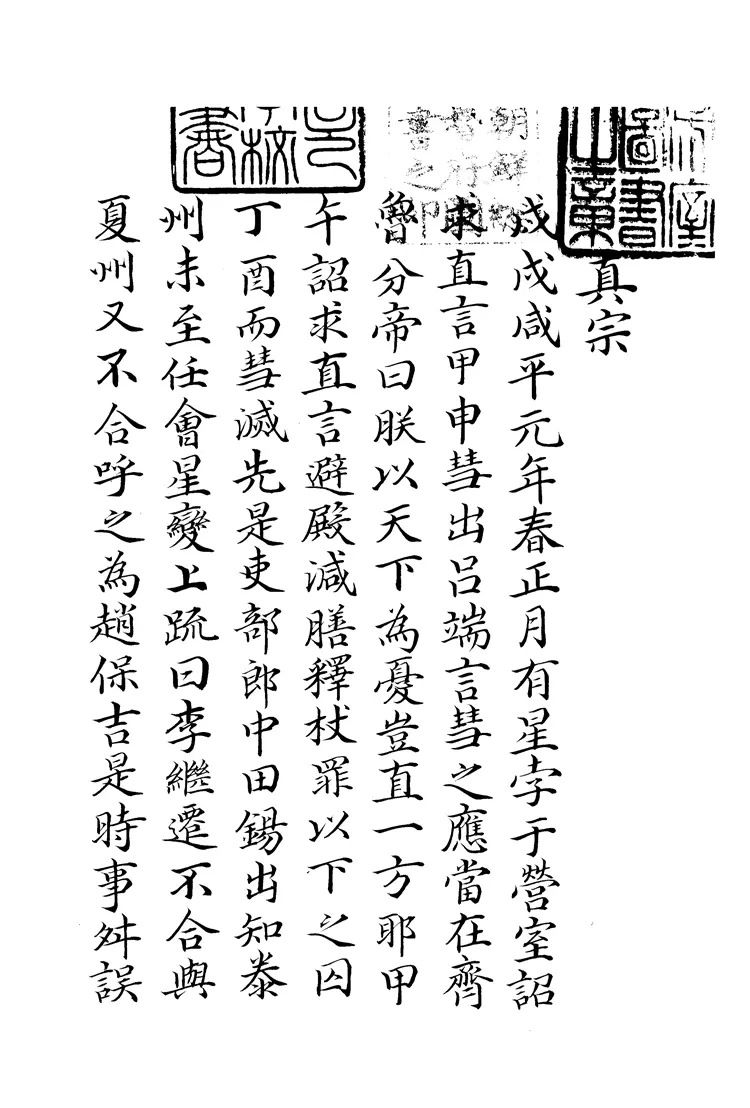 真宗
戊戌咸平元年春正月有星孛于營室詔
求直言甲申彗出呂端言彗之應當在齊
魯分帝曰朕以天下為憂豈直一方耶甲
午詔求直言避殿減膳釋杖罪以下之囚
丁酉而彗滅先是吏部郎中田錫出知泰
州未至任會星變上疏曰李繼遷不合與
夏州又不合呼之為趙保吉是時事舛誤